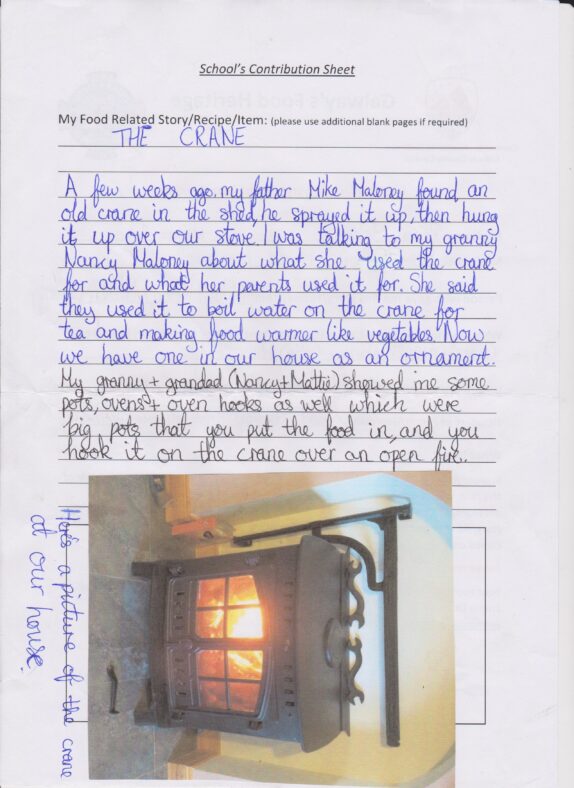 School's Contribution Sheet
My Food Related Story/Recipe/Item: (please use additional blank pages if required)
THE CRANE
A few weeks ago, my father Mike Maloney found an
old crane in the shed, he sprayed it up, then hung
it up over our stove. I was talking to my granny
Nancy Maloney about what she used the crane
for and what her parents used it for. She said
they used it to boil water on the crane for
tea and making food warmer like vegetables. Now
we have one in our house as an ornament.
My granny + grandad (Nancy + Mattie) showed me some
pots, ovens + oven hooks as well which were
big pots that you put the food in, and you
hook it on the crane over an open fire.
Here's a picture of the crane
at our house.